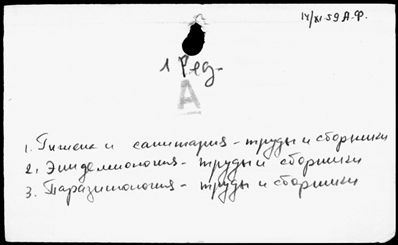 14/XI-59 А.Ф.
1 Ред.
А
1. Гигиена и санитария - труды и сборники
2. Эпидемиология - труды и сборники
3. Паразитология - труды и сборники